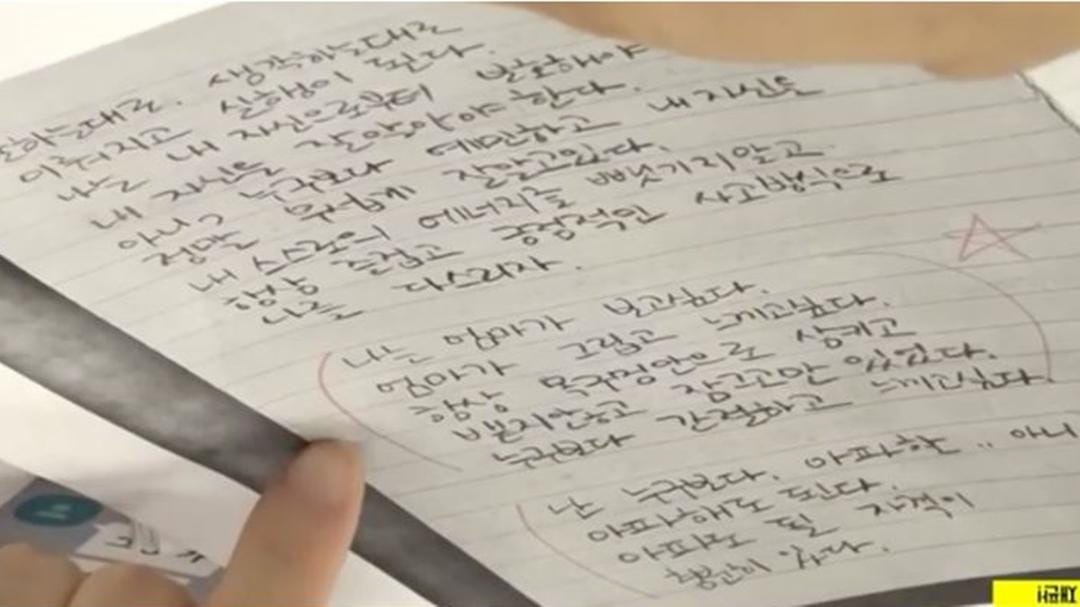 하는대로. 생각하는대로
이뤄지고 실행이 된다.
나는 내 자신으로부터 보호해야
내 자신을 잘 알아야 한다.
아니 누구보다 예민하고 내 자신을
정말 무섭게 잘 알고있다.
내 스스로의 에너지를 뺏기지 않고
항상 즐겁고 긍정적인 사고방식으로
나를 다스리자.
나는 엄마가 보고싶다.
엄마가 그립고 느끼고싶다.
항상 목구멍안으로 삼키고
뱉지안하고 참고만 있었다.
누구보다 간절하고 느끼고싶다.
난 누구보다. 아파할.. 아니
아파해도 된다.
아파도 될 자격이
충분히 있다.